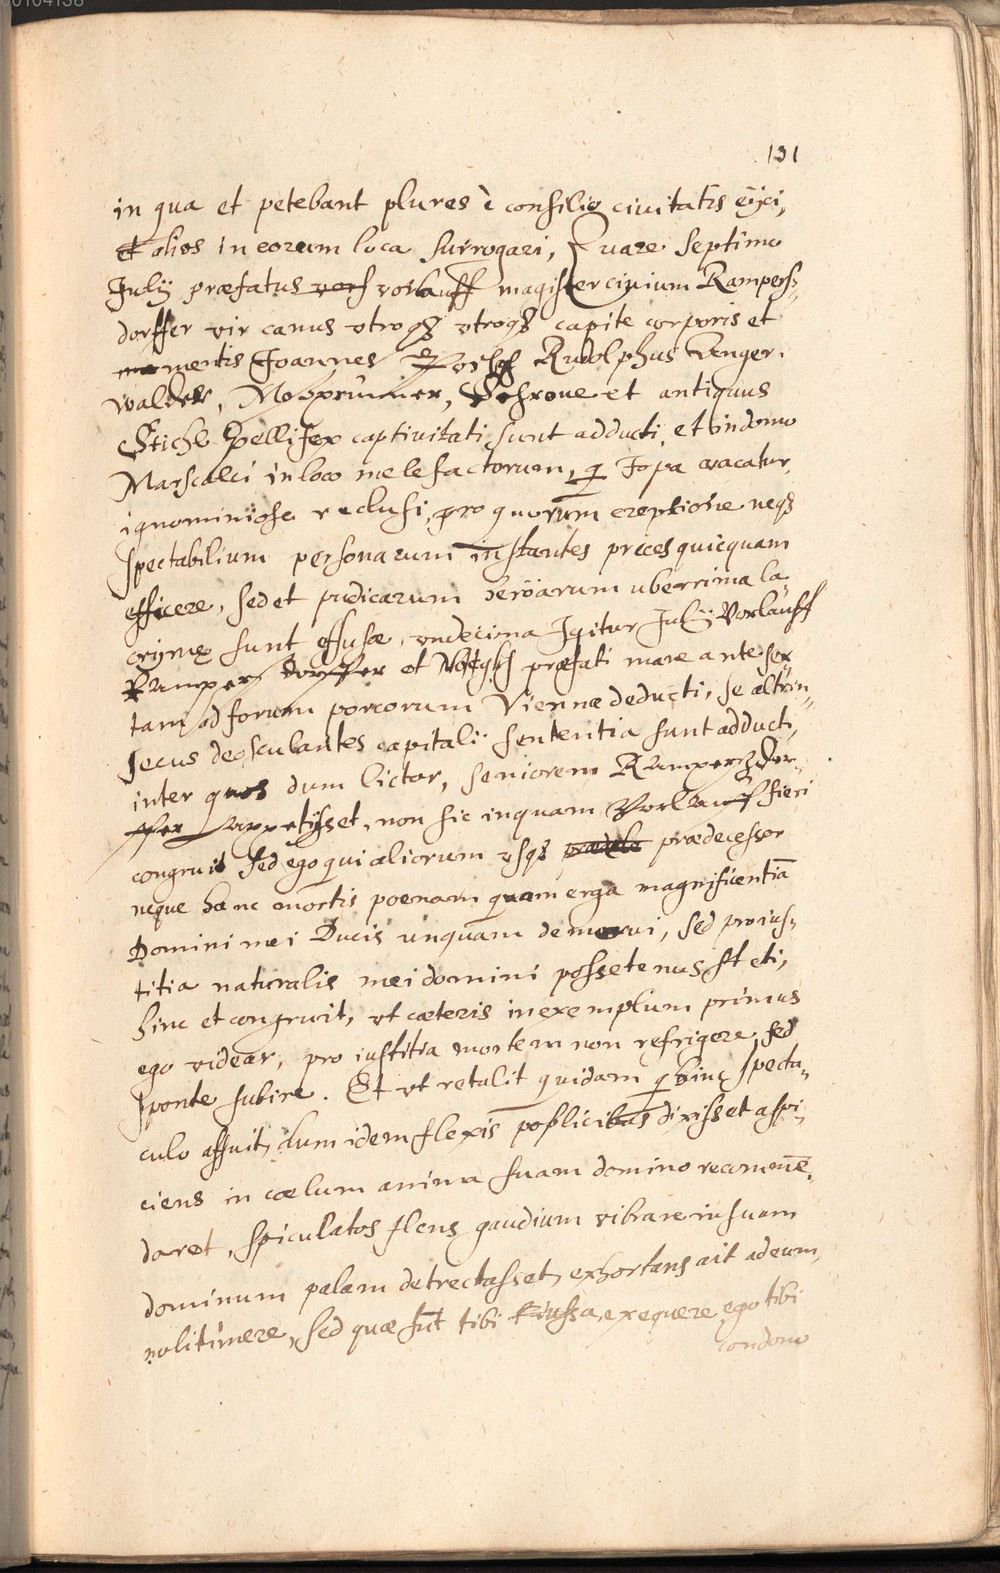 131
in qua et petebant plures è consilio ciuitatis eijci,
et alios in eorum loca surrogari, Quare septimo
Julij præfatus vors vorlauff magister ciuium Rampers,,
dorffer vir canus vtroqȝ vtroqȝ capite corporis et
ma mentis Joannes Rudolphus Anger.
walder, Mosprunner, Schroue et antiquus
Stichl Pellifex captiuitati sunt adducti, et in domo
Marscalci in loco melefactorum, q Topa vacatur,
ignominiose reclusi, pro quorum ereptione neqȝ
spectabilium personarum instantes preces quicquam
efficere, sed et pudicarum heröarum uberrima la,,
crymæ sunt effusæ, vndecima Igitur Julij Vorlauff
Rampersdorffer et præfati mane ante sex
tam ad forum porcorum Viennæ deducti, se altrin,,
secus deosculantes capitali sententia sunt adducti,
inter quos dum lictor, seniorem Ramperszdor,,
ffer appetijsset, non sic inquam Vorlauff fieri
congruit sed ego qui aliorum vsqȝ prædece prædecessor
neque hanc mortis poenam quam erga magnificentiā
Domini mei Ducis unquam demerui, sed pro ius,,
titia naturalis mei domini possetenus steti,
hinc et congruit, vt cæteris in exemplum primus
ego videar, pro iustitia mortem non refrigere sed
sponte subire. Et vt retulit quidam q huic specta,,
culo affuit, dum idem flexis poplicibus dixisset aspi,,
ciens in coelum anima suam domino recommē,,
daret, spiculatos flens gaudium vibrare in suum
dominum palam detrectasset, exhortans ait ad eum,
noli timere, sed quæ sūt tibi iussa, exequere, ego tibi
condono